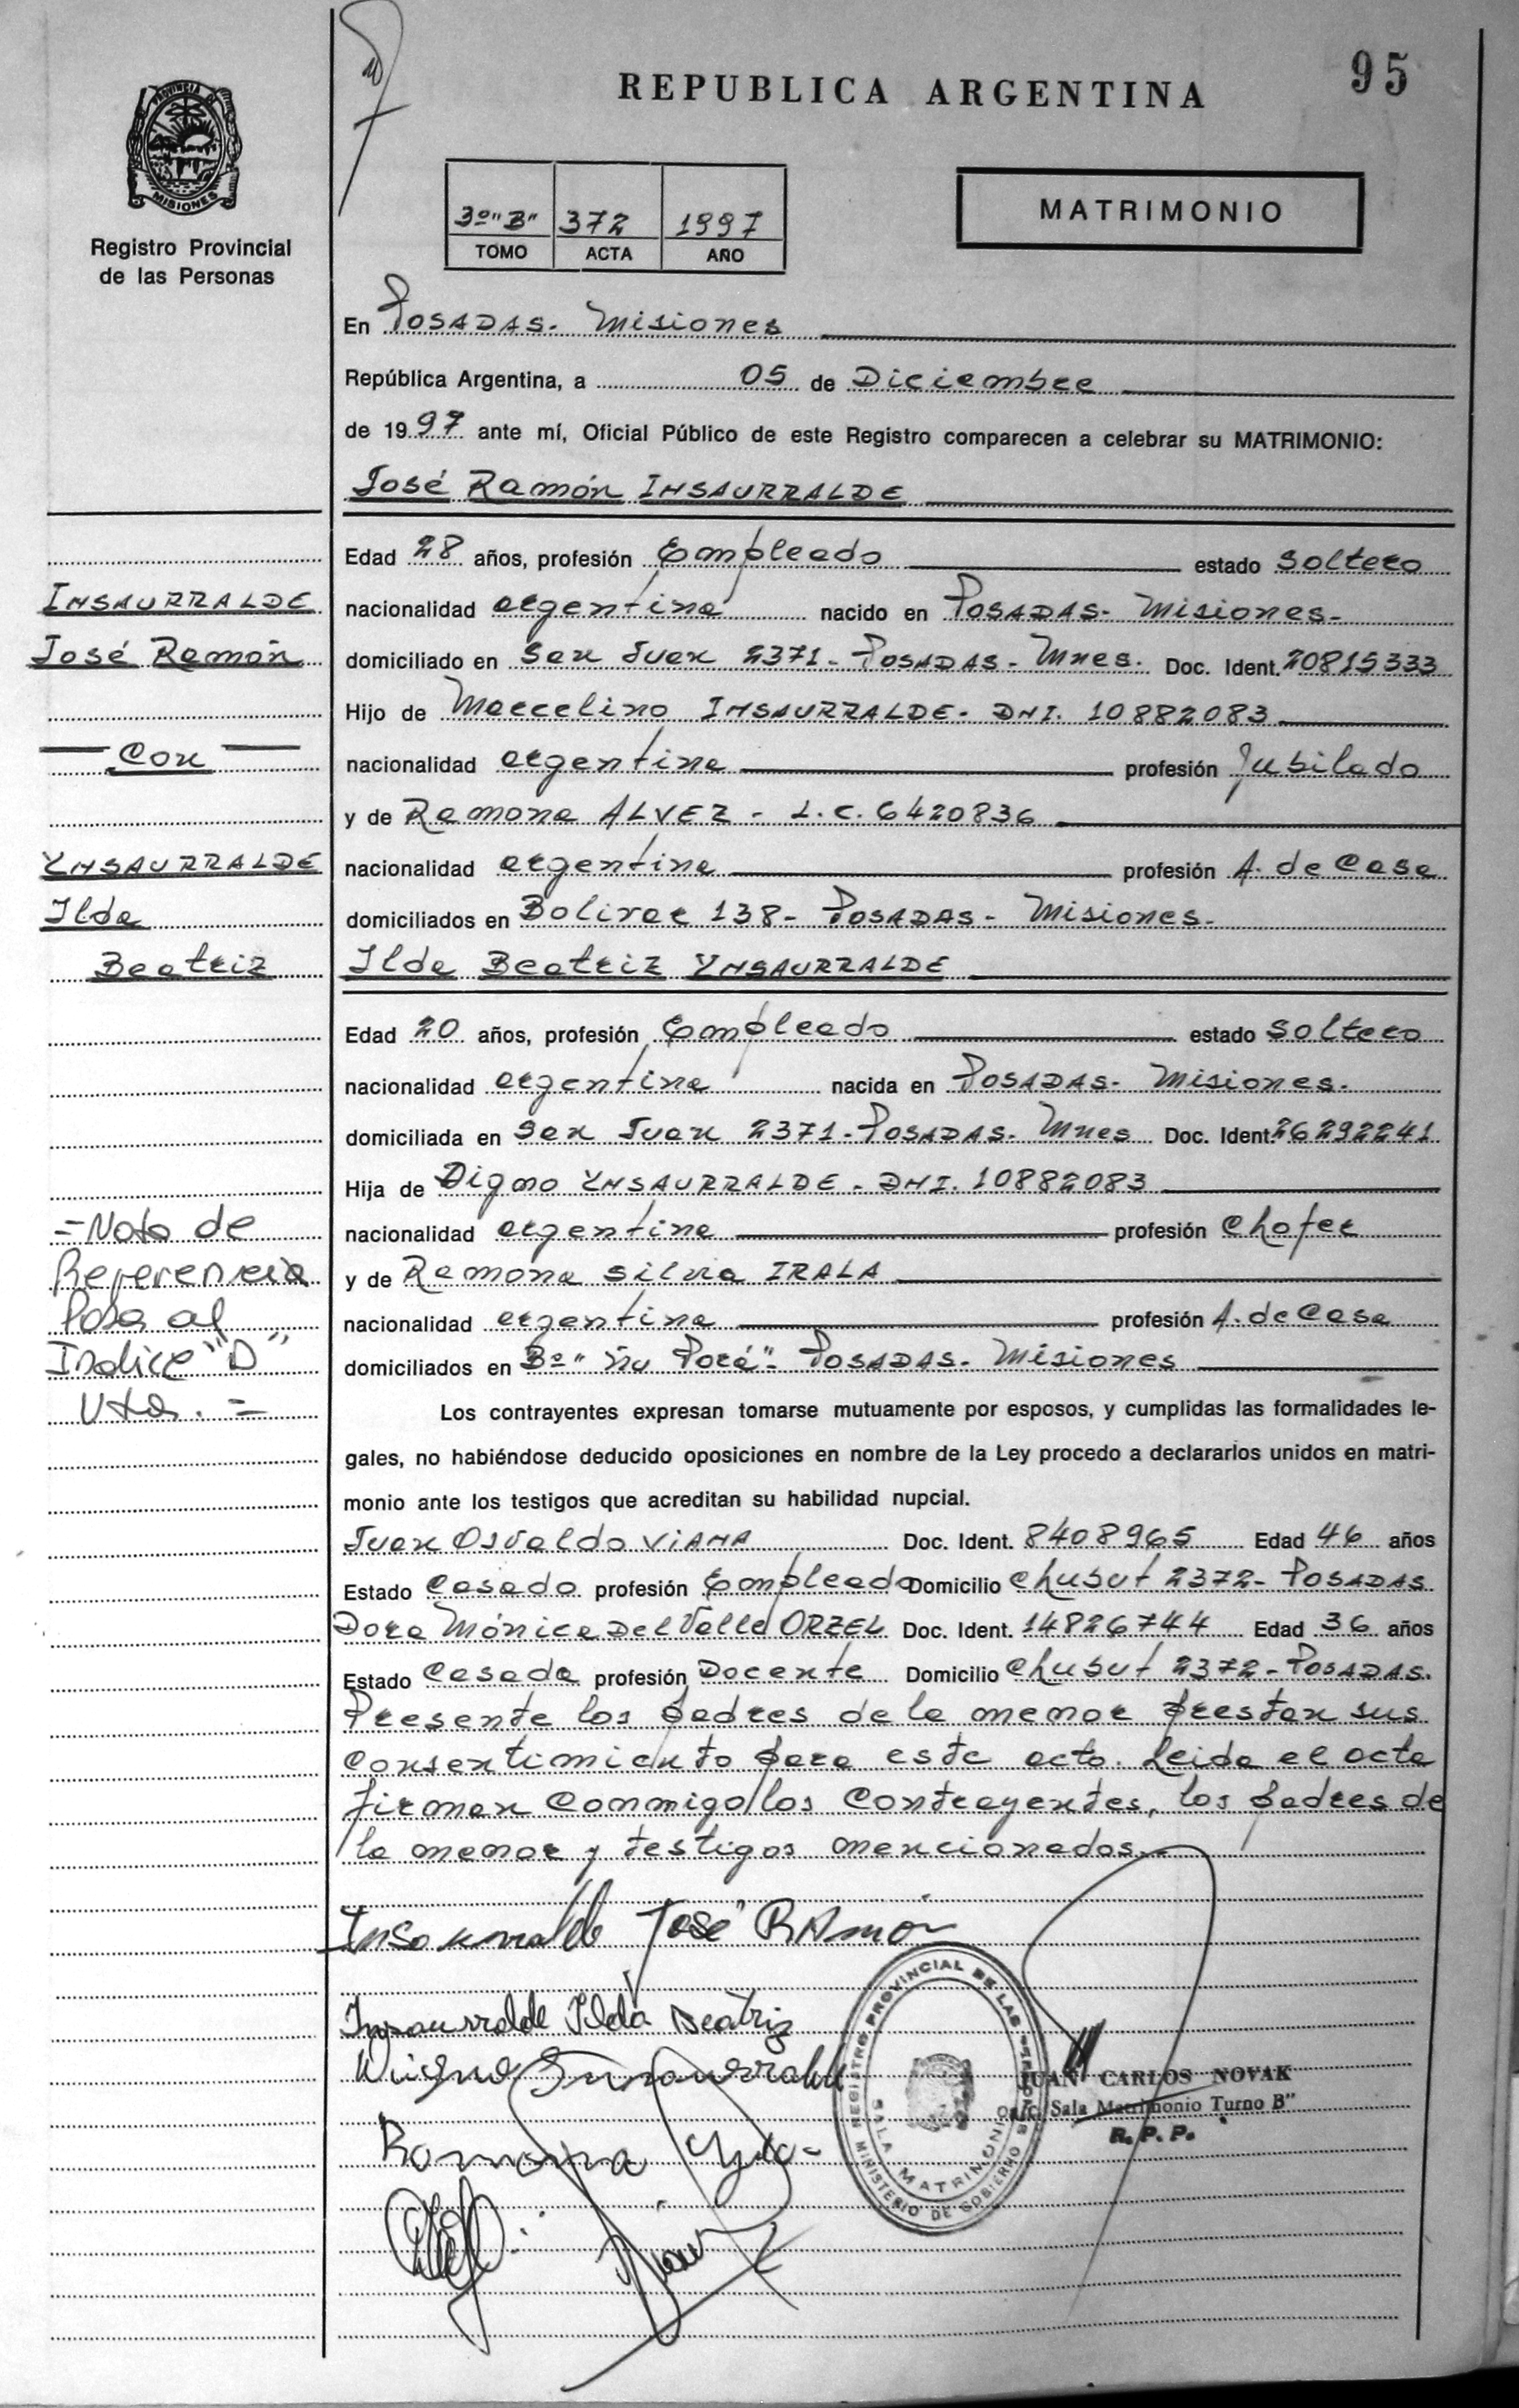 95
REPUBLICA ARGENTINA
PROVINCIA DE
MISIONES
Registro Provincial
de las Personas
3º "B" 372 1997
TOMO ACTA AÑO
MATRIMONIO
En POSADAS- Misiones
República Argentina, a 05 de Diciembre
de 1997 ante mí, Oficial Público de este Registro comparecen a celebrar su MATRIMONIO:
José Ramón INSAURRALDE
Edad 28 años, profesión Empleado estado soltero
nacionalidad argentina nacido en POSADAS- Misiones-
domiciliado en San Juan 2371- POSADAS- Mnes. Doc. Ident. 20815333
Hijo de Marcelino INSAURRALDE- DNI. 10882083
nacionalidad argentina profesión Jubilado
y de Ramona ALVEZ - L.C. 6420836
nacionalidad argentina profesión A. de Casa
domiciliados en Bolivar 138- POSADAS- Misiones-
Ilda Beatriz YNSAURRALDE
Edad 20 años, profesión Empleado estado soltero
nacionalidad argentina nacida en POSADAS- Misiones-
domiciliada en San Juan 2371- POSADAS- Mnes Doc. Ident. 26292241
Hija de Digno YNSAURRALDE - DNI. 10882083
nacionalidad argentina profesión Chofer
y de Ramona Silvia IRALA
nacionalidad argentina profesión A. de Casa
domiciliados en Bº "Ñu Porá"- POSADAS- Misiones
Los contrayentes expresan tomarse mutuamente por esposos, y cumplidas las formalidades le-
gales, no habiéndose deducido oposiciones en nombre de la Ley procedo a declararlos unidos en matri-
monio ante los testigos que acreditan su habilidad nupcial.
Juan Osvaldo VIANA Doc. Ident. 8408965 Edad 46 años
Estado Casado profesión Empleado Domicilio Chubut 2372- POSADAS
Dora Mónica Del Valle ORZEL Doc. Ident. 14826744 Edad 36 años
Estado Casada profesión Docente Domicilio Chubut 2372- POSADAS.
Presente los padres de la menor prestan sus
consentimiento para este acto. Leida el acta
firman conmigo los contrayentes, los padres de
la menor y testigos mencionados.
INSAURRALDE
José Ramón
Con
YNSAURRALDE
Ilda
Beatriz
=Nota de
Referencia
Pasa al
Indice "D"
Vta. =
Insaurralde José RAmón
Insaurralde Ilda Beatriz
Ramona
REGISTRO PROVINCIAL DE LAS PERSONAS
SALA MATRIMONIO
MINISTERIO DE GOBIERNO
JUAN CARLOS NOVAK
a/c. Sala Matrimonio Turno B"
R. P. P.